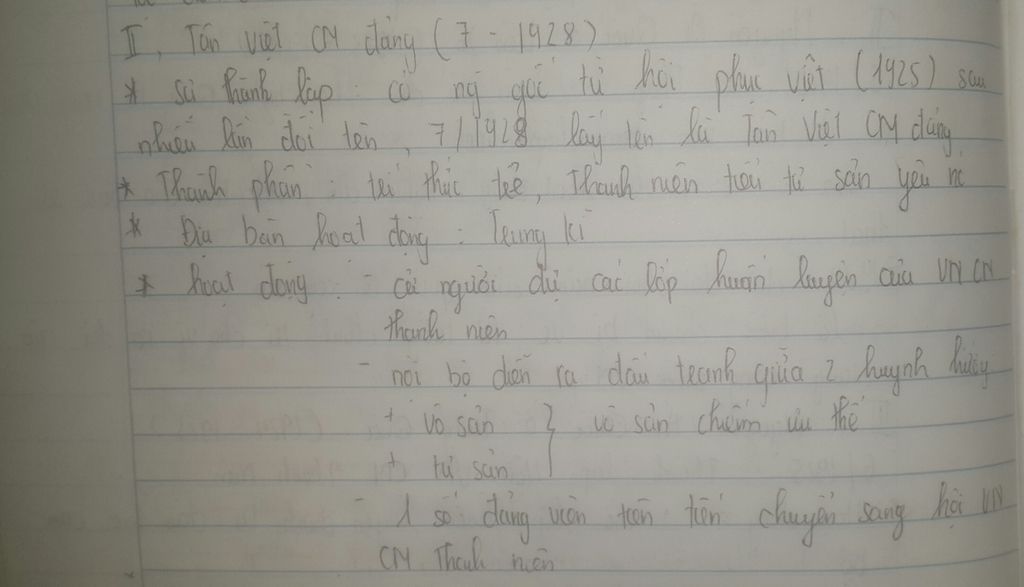 II, Tân Việt CM đảng (7 - 1928)
* Sự thành lập : có ng gốc từ hội phục việt (1925) sau
nhiều lần đổi tên, 7/1928 lấy tên là Tân Việt CM đảng
* Thành phần : trí thức trẻ, Thanh niên tiểu tư sản yêu nc
* Địa bàn hoạt động : Trung kì
* hoạt động : - cử người dự các lớp huấn luyện của VN CM
thanh niên
- nội bộ diễn ra đấu tranh giữa 2 khuynh hướng
+ vô sản } vô sản chiếm ưu thế
+ tư sản
- 1 số đảng viên tiên tiến chuyển sang hội VN
CM Thanh niên